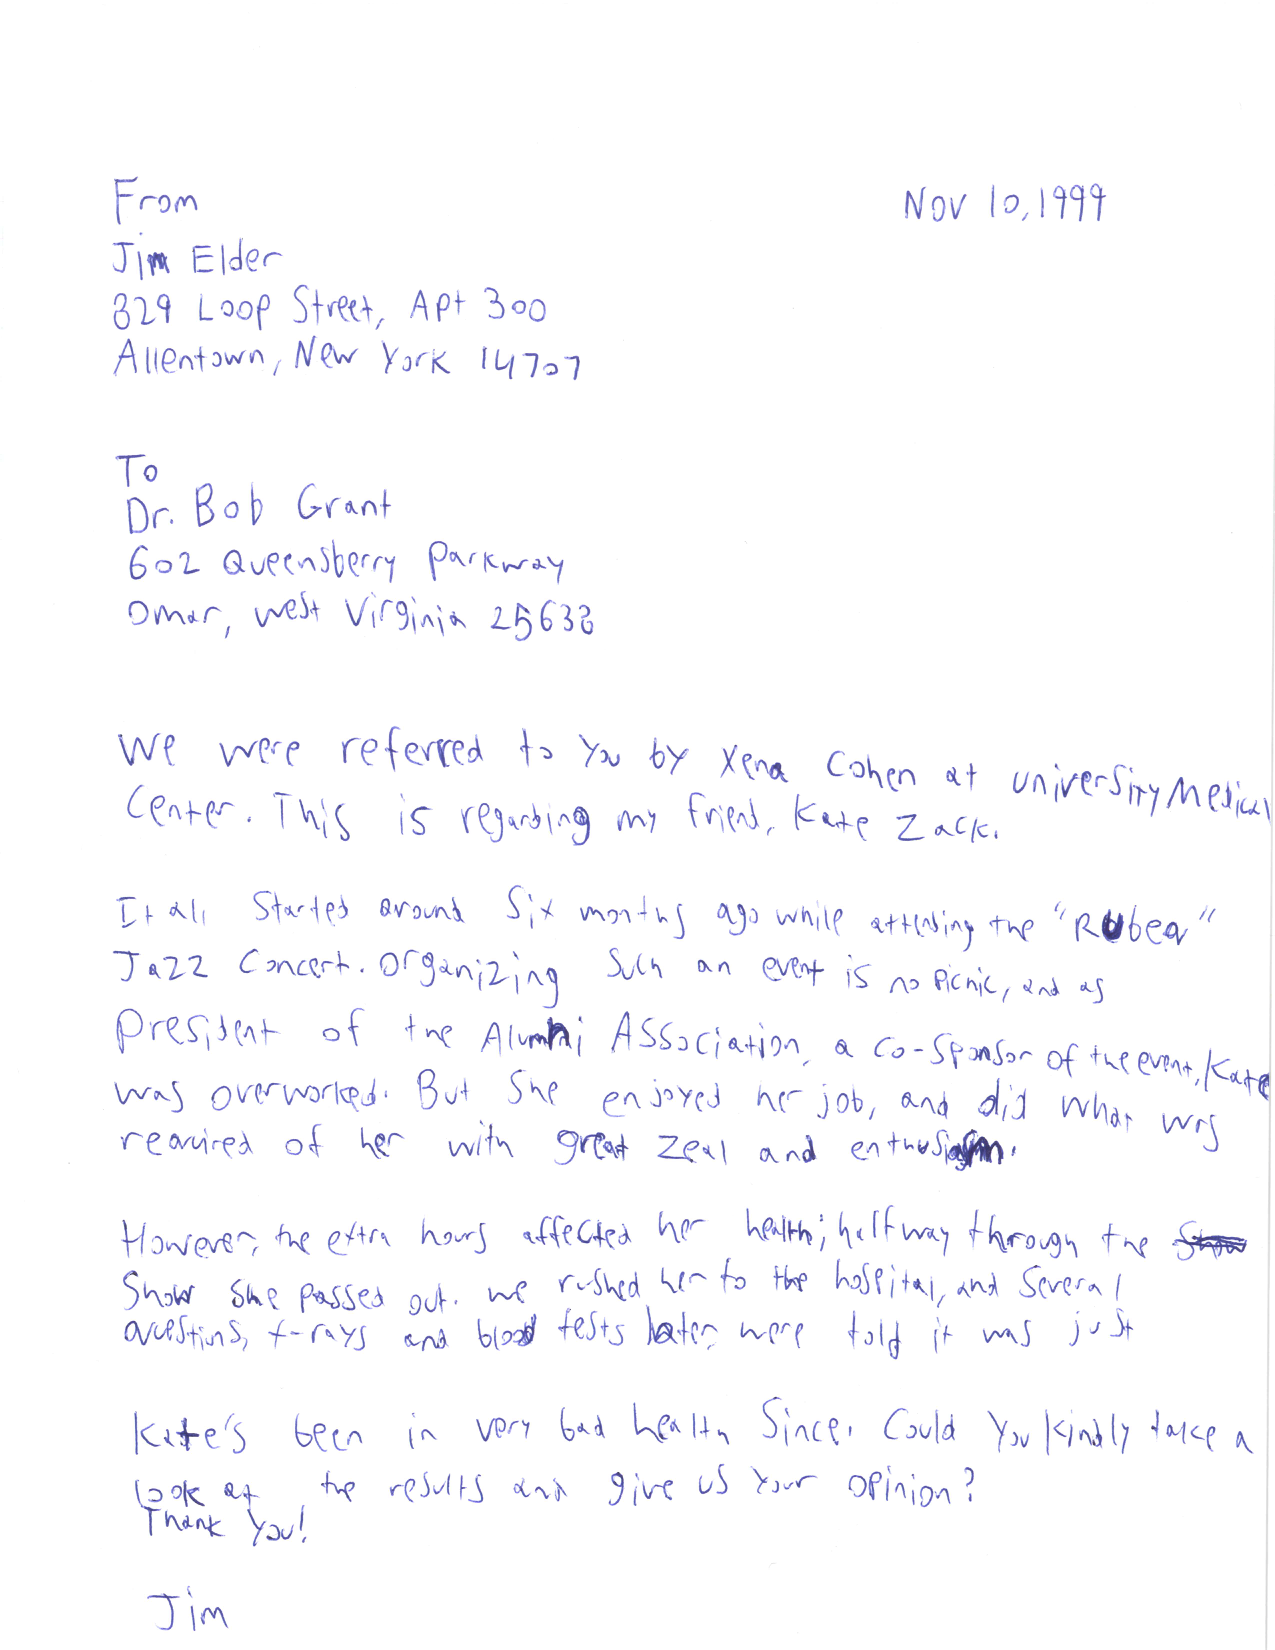 From
Nov 10, 1999
Jim Elder
829 Loop Street, Apt 300
Allentown, New York 14707
To
Dr. Bob Grant
602 Queensberry Parkway
Omar, West Virginia 25638
We were referred to you by Xena Cohen at University Medical
Center. This is regarding my friend, Kate Zack.
It all started around six months ago while attending the "Rubeq"
Jazz Concert. Organizing such an event is no picnic, and as
President of the Alumni Association, a co-sponsor of the event, Kate
was overworked. But she enjoyed her job, and did what was
required of her with great zeal and enthusiasm.
However, the extra hours affected her health; halfway through the
show she passed out. We rushed her to the hospital, and several
questions, x-rays and blood tests later, were told it was just
Kate's been in very bad health since. Could you kindly take a
look at the results and give us your opinion?
Thank you!
Jim